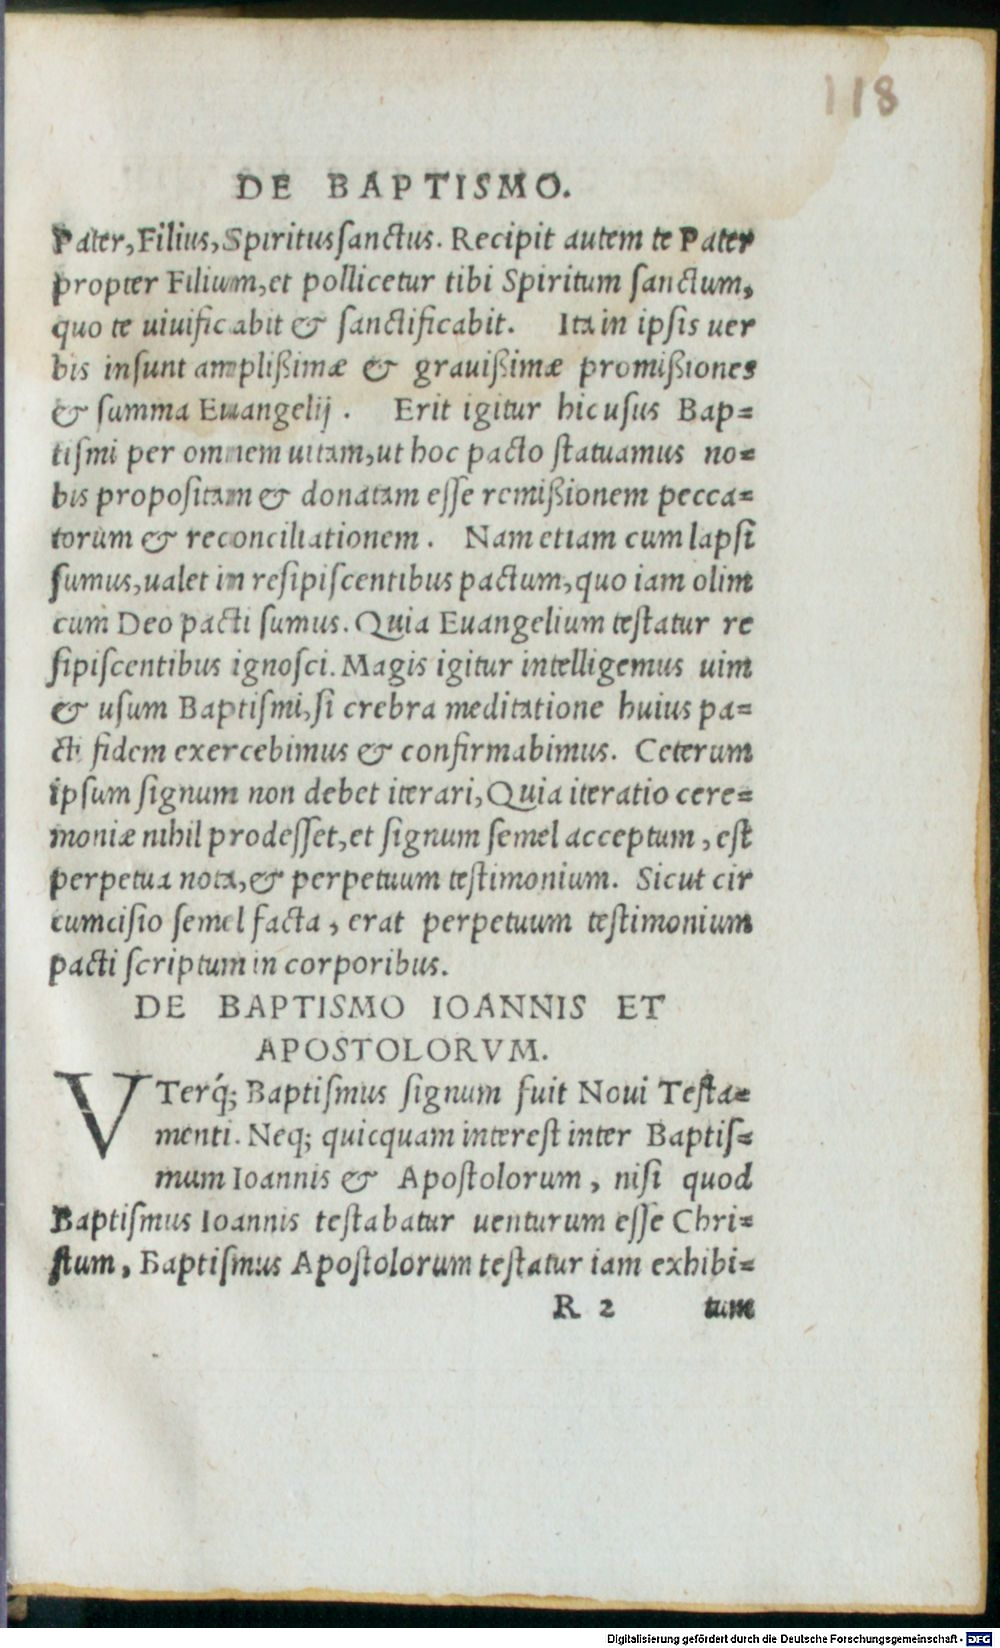 118
DE BAPTISMO.
Pater, Filius, Spiritus ſanctus. Recipit autem te Pater
propter Filium, et pollicetur tibi Spiritum ſanctum,
quo te uiuificabit & ſanctificabit. Ita in ipſis uer
bis inſunt ampliſsimæ & grauiſsimæ promiſsiones
& ſumma Euangelij. Erit igitur hic uſus Bap=
tiſmi per omnem uitam, ut hoc pacto ſtatuamus no=
bis propoſitam & donatam eſſe remiſsionem pecca=
torum & reconciliationem. Nam etiam cum lapſi
ſumus, ualet in reſipiſcentibus pactum, quo iam olim
cum Deo pacti ſumus. Quia Euangelium teſtatur re
ſipiſcentibus ignoſci. Magis igitur intelligemus uim
& uſum Baptiſmi, ſi crebra meditatione huius pa=
cti fidem exercebimus & confirmabimus. Ceterum
ipſum ſignum non debet iterari, Quia iteratio cere=
moniæ nihil prodeſſet, et ſignum ſemel acceptum, eſt
perpetua nota, & perpetuum teſtimonium. Sicut cir
cumciſio ſemel facta, erat perpetuum teſtimonium
pacti ſcriptum in corporibus.
DE BAPTISMO IOANNIS ET
APOSTOLORVM.
VTerq́; Baptiſmus ſignum fuit Noui Teſta=
menti. Neq; quicquam intereſt inter Baptiſ=
mum Ioannis & Apoſtolorum, niſi quod
Baptiſmus Ioannis teſtabatur uenturum eſſe Chri=
ſtum, Baptiſmus Apoſtolorum teſtatur iam exhibi=
R 2 tum
Digitalisierung gefördert durch die Deutsche Forschungsgemeinschaft - DFG